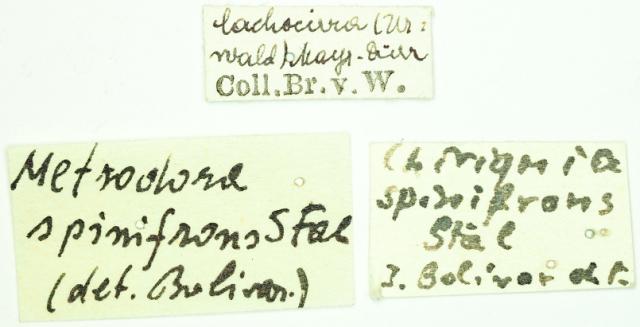 Cachocivra (Ur:
wald)
Coll. Br. v. W.
Metrodora
spinifrons Stal
(det. Bolivar.)
Chiriquia
spinifrons
Stål
I. Bolivar det.